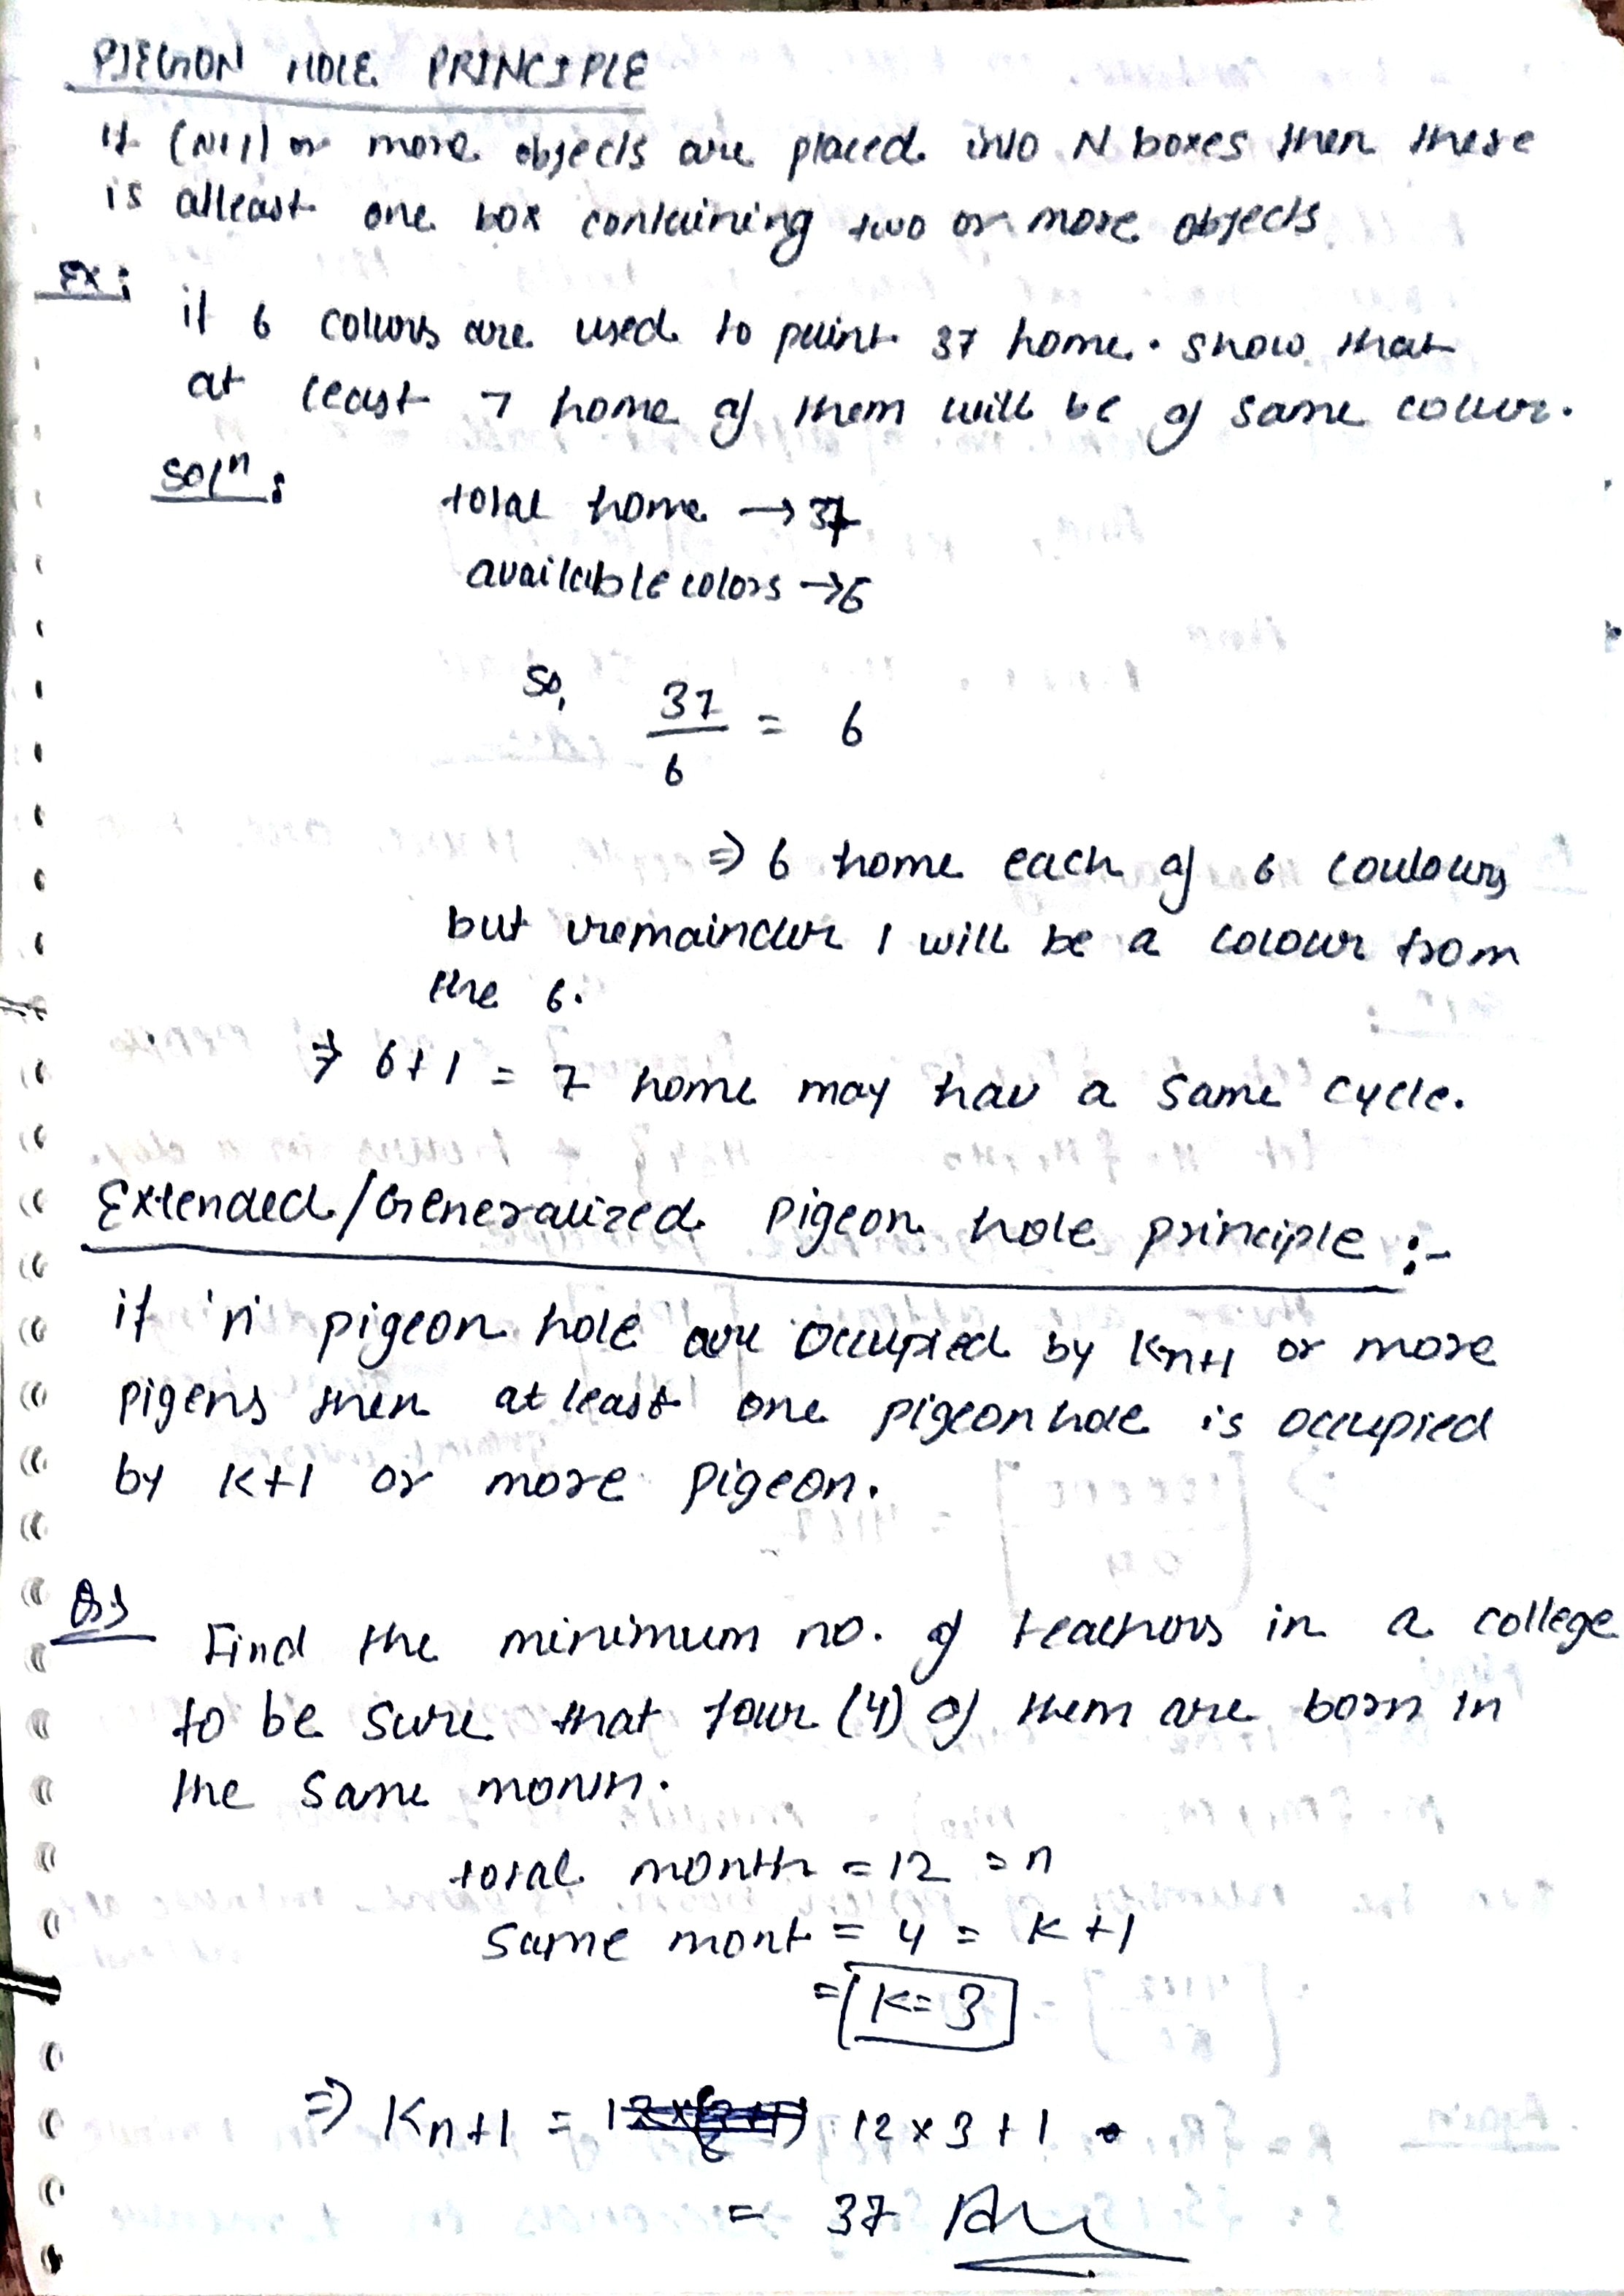 PIEGON HOLE PRINCIPLE
if (N+1) or more objects are placed into N boxes then there
is atleast one box containing two or more objects
Ex:
if 6 colours are used to paint 37 home. show that
at least 7 home of them will be of same colour.
Solⁿ:
total home → 37
available colors → 6
So, 37/6 = 6
⇒ 6 home each of 6 coulours
but remainder 1 will be a colour from
the 6.
⇒ 6+1 = 7 home may hav a same cycle.
Extended/Generalized pigeon hole principle :-
if 'n' pigeon hole are occupied by Kn+1 or more
pigens then at least one pigeonhole is occupied
by K+1 or more pigeon.
Find the minimum no. of teachors in a college
to be sure that four (4) of them are born in
the same month.
total month = 12 = n
Same mont = 4 = K+1
= K=3
⇒ Kn+1 = 12×3+1
= 37 Ans